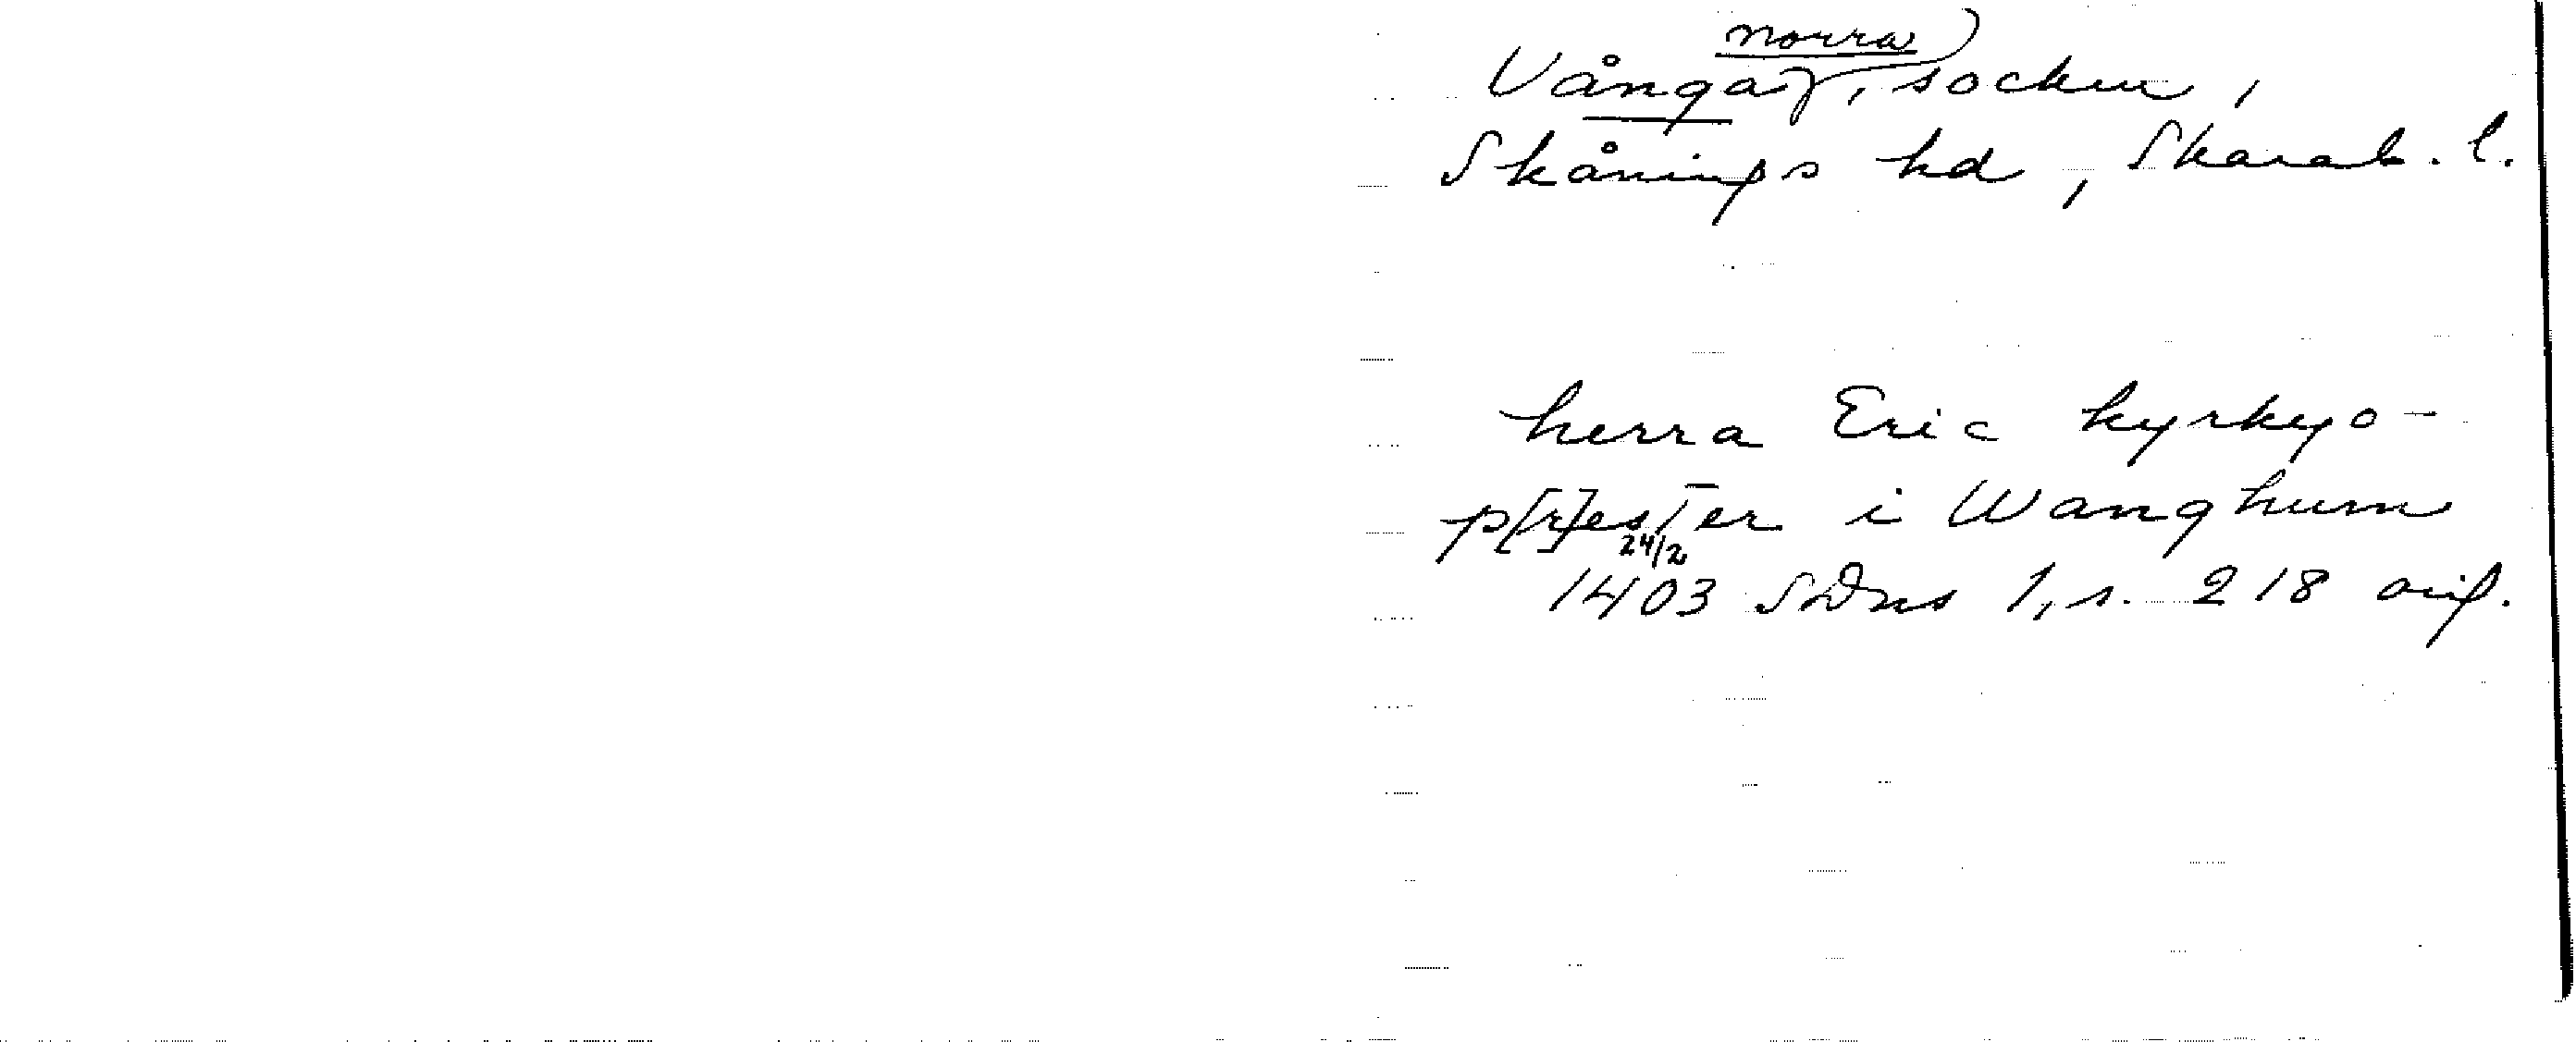 Vånga, norra, socken,
Skånings hd, Skarab. l.
herra Eric kyrkyo-
p[r]ester i Wanghum
24/2
1403 SDns 1, s. 218 orig.